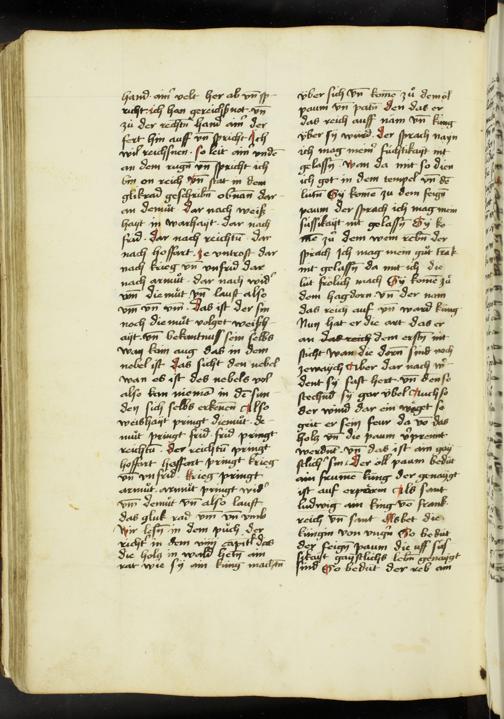 hand ainr velt her ab vn̄ sp
richt ich han gereichsnot vn̄
zů der rechtn̄ hand ainr der
fert hin auff vn̄ spricht Ich
wil reichsnen so leit ainr vndē
an dem rugn̄ vn̄ spricht ich
bin on reich vn̄ stat in dem
glikrad geschribn̄ obnan dar
an demůt Dar nach weiß
hayt in warhayt dar nach
frid Dar nach reichtū dar
nach hoffart ze vntrost dar
nach krieg vn̄ vnfrid dar
nach armůt dar nach wid'
vm̄ diemůt vn̄ laust also
vm̄ vn̄ vm̄ Das ist der sin
noch diemůt volget weißh
ayt vn̄ bekantnuss sein selbs
wan kain aug das in dem
nebel ist das sicht den nebel
wan es ist des nebels vol
also kan niema in de sun
den sich selbs erkenen Also
weishayt pringt diemůt de
můt pringt frid frid pringt
reichtū der reichtū pringt
hoffart hoffart pringt krieg
vn̄ vnfrid krieg pringt
armůt armůt pringt wid'
vm̄ demůt vn̄ also laust
das gluk rad vm̄ vn̄ vmb
Wir lesn̄ in dem půch der
richt' in dem viiij capitl das
die holtz in wald hetn̄ ain
rat wie sy ain kůnig machtn̄
vber sich vn̄ kome zů dem öl
paum vn̄ patn̄ den das er
das reich auff nam vn̄ kung
vber sy wurd der sprach nayn
ich mag mein fuchtikayt nit
gelassn̄ wan da mit so dien
ich got in dem tempel vn̄ dē
lutn̄ Sy kome zů dem feign̄
paum der sprach ich mag mein
sussikayt nit gelassn̄ Sy ko
me zů dem wein rebn̄ der
sprach Ich mag mein gůt trāk
nit gelassn̄ da mit ich die
lüt frölich mach Sy kome zů
dem hagdorn vn̄ der nam
das reich auf vn̄ ward kung
Nun hat er die art das er
an das reich dem ersten nit
sticht wan die dorn sind noch
zewaych Aber dar nach w
dent sy fast hert vn̄ denso
stechend sy gar vbel Auch so
der wind dar ein waget so
geit er sein feur da vō das
holtz vn̄ die paum vprennt
werdnt vn̄ das ist ain gay
stlich' sin Der öll paum bedüt
ain frume kung der genaygt
ist auf erparm Als sant
ludwig ain kung vō frank
reich vn̄ sant Elsbet die
kungin von vngrn̄ So bedüt
der feign̄ paum die uff süs
sikayt gaystlichs lebn̄ genaygt
sind So bedüt der reb ain